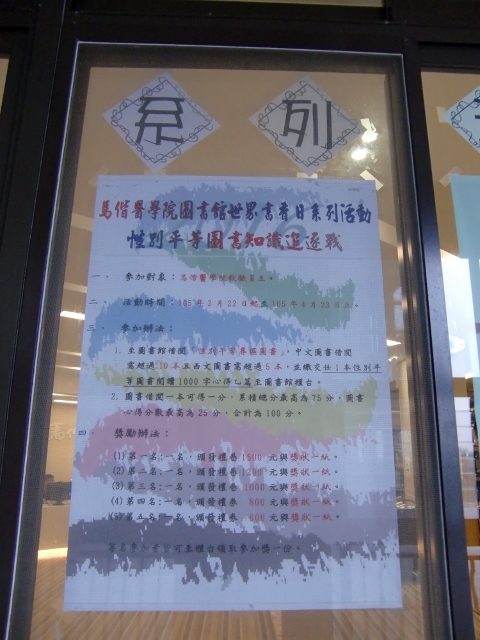 系列
馬偕醫學院圖書館世界書香日系列活動
性別平等圖書知識追逐戰
一、 參加對象：馬偕醫學院教職員生。
二、 活動時間：105年2月22日起至105年4月23日止。
三、 參加辦法：
1. 至圖書館借閱「性別平等專區圖書」，中文圖書借閱
需超過10本且西文圖書需超過5本，並繳交任1本性別平
等圖書閱讀1000字心得乙篇至圖書館櫃台。
2. 圖書借閱一本可得一分，累積總分最高為75分，圖書
心得分數最高為25分，合計為100分。
四、 獎勵辦法：
(1) 第一名：一名，頒發禮卷1500元與獎狀一紙。
(2) 第二名：一名，頒發禮卷1200元與獎狀一紙。
(3) 第三名：一名，頒發禮卷1000元與獎狀一紙。
(4) 第四名：一名，頒發禮卷 800元與獎狀一紙。
(5) 第五名：一名，頒發禮卷 600元與獎狀一紙。
參加者皆可至櫃台領取參加獎一份。